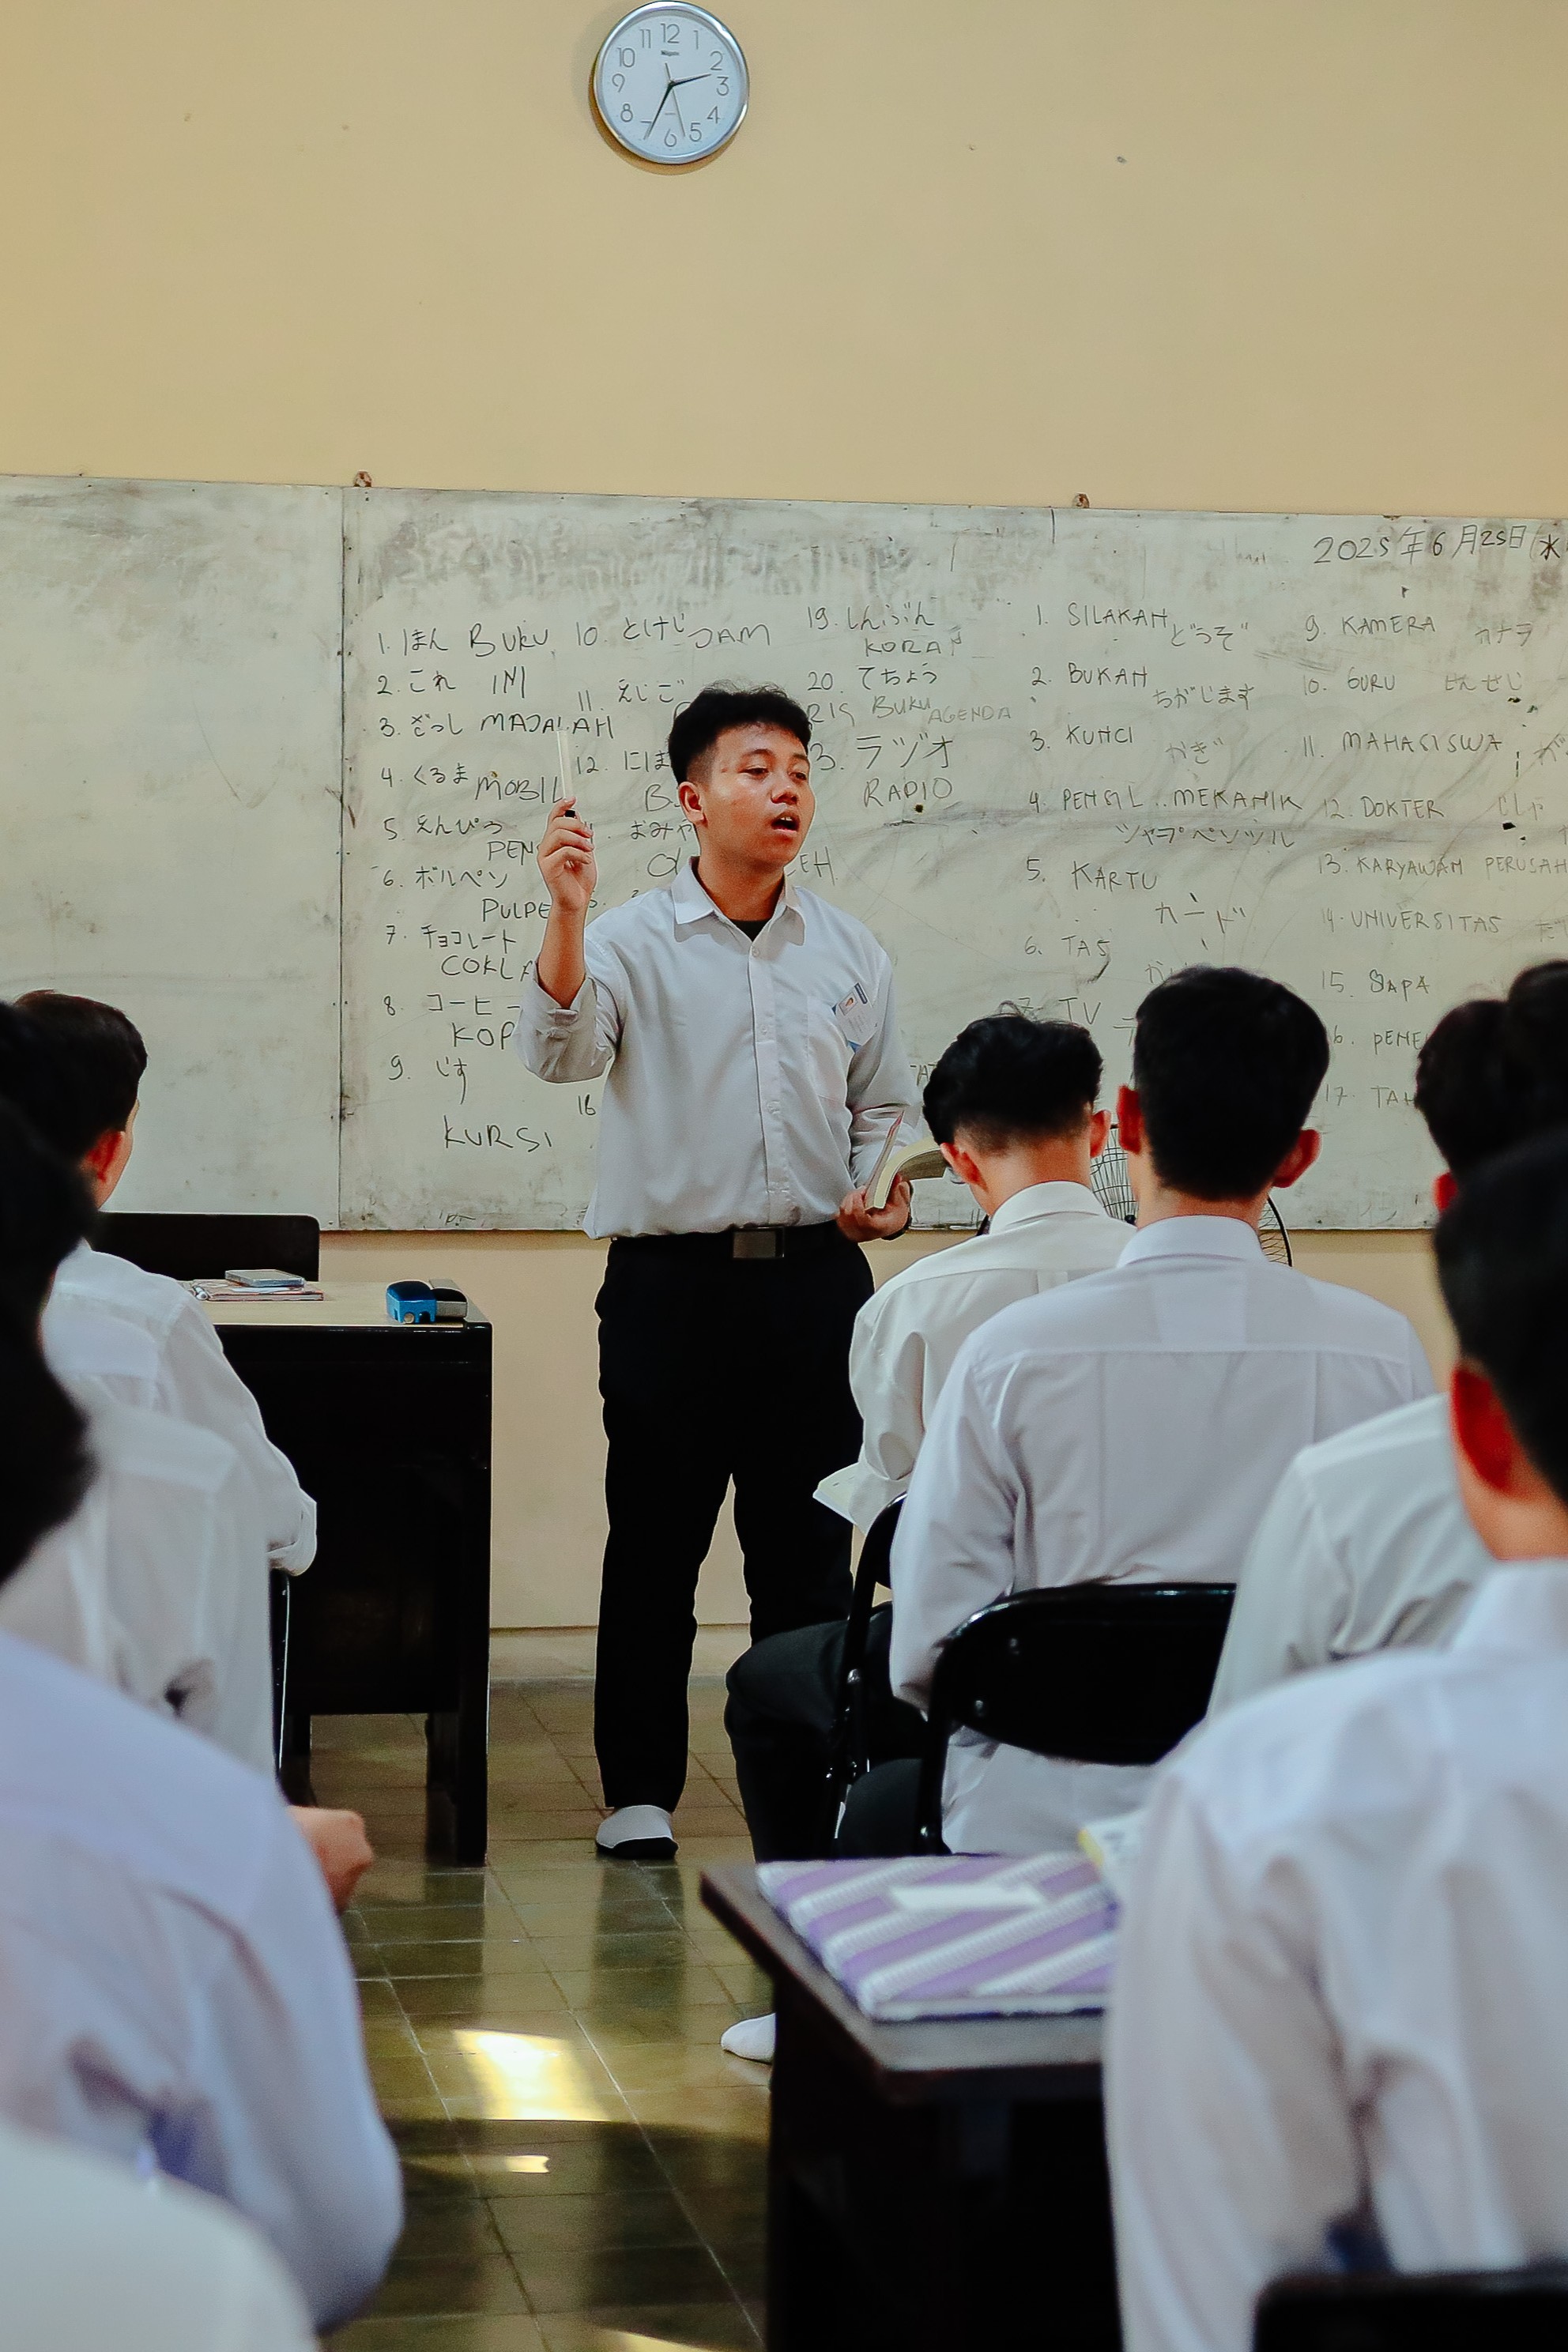 12
1
2
3
4
5
6
7
8
9
10
11
2025年6月25日(水
1. ほん BUKU
2. これ INI
3. ざっし MAJALAH
4. くるま MOBIL
5. えんぴつ
PENS
6. ボルペン
PULPE
7. チョコレート
COKLA
8. コーヒー
KOP
9. いす
KURSI
10. とけじ JAM
11. えじご
12. にほ
おみや
16
19. しんぶん
KORAN
20. てちょう
RIS BUKU AGENDA
3. ラヅオ
RADIO
1. SILAKAH
どうぞ
2. BUKAN
ちがじます
3. KUNCI
かぎ
4. PENSIL..MEKANIK
5. KARTU
カード
6. TAS
7. TV
9. KAMERA
10. GURU せんせじ
11. MAHASISWA
12. DOKTER
13. KARYAWAN PERUSAH
14. UNIVERSITAS
15. SIAPA
6. PENE
17. TAH